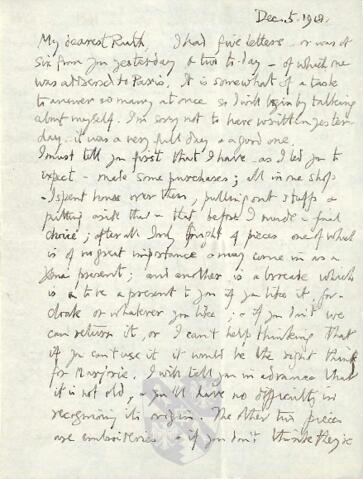 Dec. 5. 1918.
My dearest Ruth, I had five letters - or was it
six from you yesterday & two to-day - of which one
was addressed to Paris. It is somewhat of a task
to answer so many at once so I will begin by talking
about myself. I'm sorry not to have written yester-
day - it was a very full day & a good one.
I must tell you first that I have - as I led you to
expect - made some purchases; all in one shop
- I spent hours over them, pulling out stuffs &
putting aside that - that before I made a final
choice; after all I only bought 4 pieces one of which
is of no great importance & may come in as a
Xmas present; and another is a brocade which
is to be a present to you if you like it, for a
cloak or whatever you like; & if you don't we
can return it, or I can't help thinking that
if you can't use it it would be the right thing
for Marjorie. I will tell you in advance that
it is not old, & you'll have no difficulty in
recognising its origin. The other two pieces
are embroideries & if you don't think they're